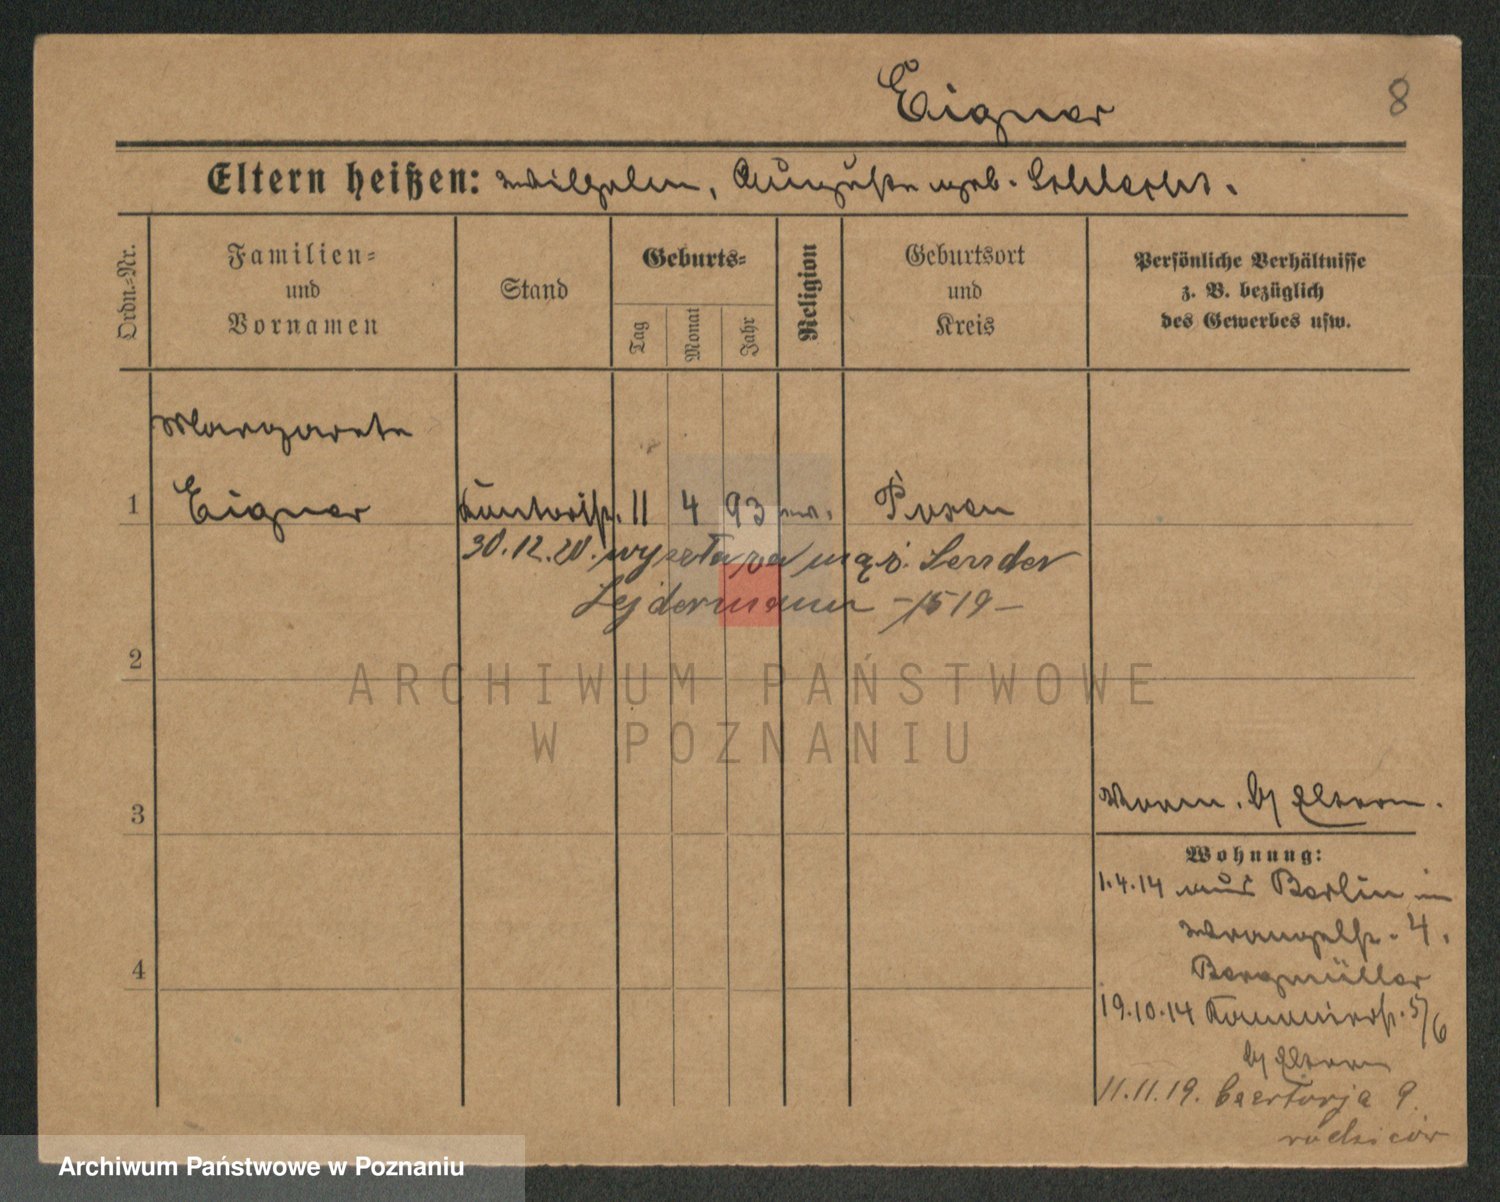 Eigner 8
Eltern heißen: Wilhelm, Auguste geb. Schlecht.
Ordn.-Nr.
Familien-
und
Vornamen
Stand
Geburts-
Tag
Monat
Jahr
Religion
Geburtsort
und
Kreis
Persönliche Verhältnisse
z. B. bezüglich
des Gewerbes usw.
Margarete
1 Eigner Kontorist. 11 4 93 ev. Posen
30.12.20. wyszła za mąż.
Lejdermann
2
ARCHIWUM PAŃSTWOWE
W POZNANIU
3
Vorm. b/ Eltern.
Wohnung:
1.4.14 aus Berlin in
Wrangelstr. 4.
Bergmüller
4
19.10.14 5/6
b/ Eltern
11.11.19. Czartorja 9
rodziców
Archiwum Państwowe w Poznaniu